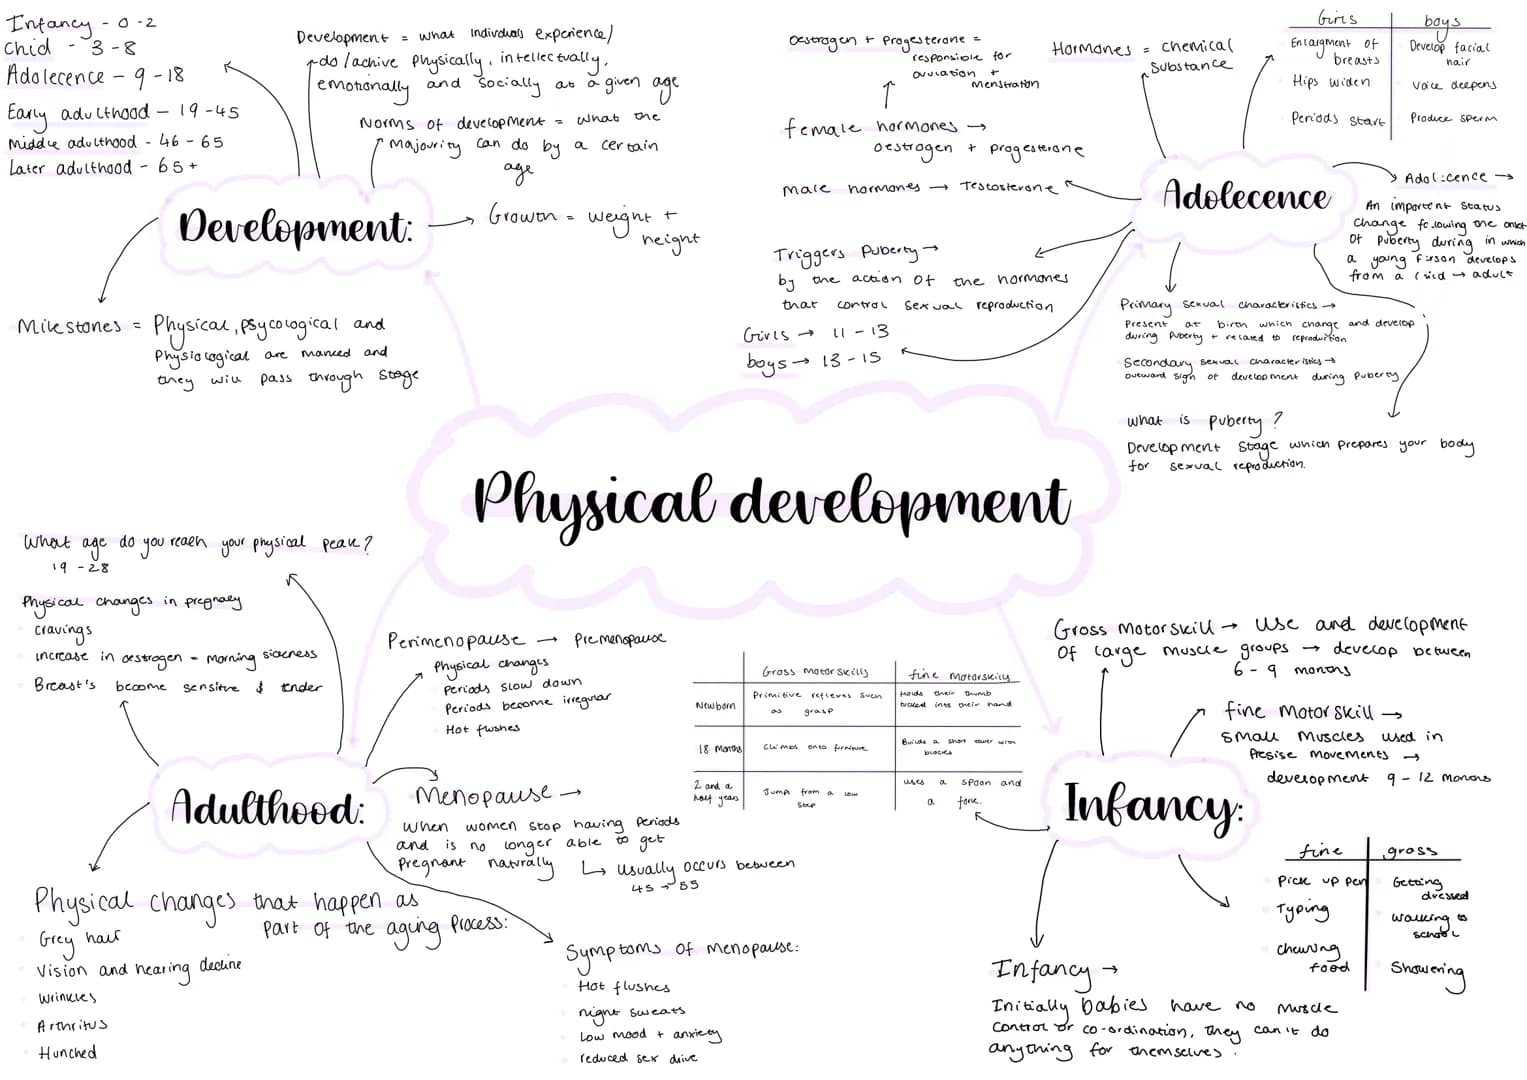 Infancy - 0-2
Chid - 3-8
Adolecence - 9-18
Early adulthood - 19-45
Middle adulthood - 46-65
Later adulthood - 65+
Development = what individuals experience/
do/achive physically, intellectually,
emotionally and socially at a given age
Norms of development = what the
majourity can do by a certain
age
Development:
Growth = weight +
height
Milestones = Physical, psycological and
Physiological are marked and
they will pass through stage
Oestrogen + Progesterone =
responsible for
ovulation +
menstration
female hormones →
oestrogen + progesterone
male hormones → Testosterone
Hormones = chemical
substance
Girls boys
Enlargment of breasts Develop facial hair
Hips widen Voice deepens
Periods start Produce sperm
Adolecence
Adolicence →
An important status
change following the onset
of puberty during in which
a young person develops
from a child → adult
Triggers Puberty →
by the action of the hormones
that control sexual reproduction
Girls → 11-13
boys → 13-15
Primary sexual characteristics →
Present at birth which change and develop
during puberty + related to reproduction
Secondary sexual characteristics →
outward sign of development during puberty
what is puberty?
Development stage which prepares your body
for sexual reproduction.
Physical development
What age do you reach your physical peak?
19-28
Physical changes in pregnacy
cravings
increase in oestrogen = morning sickness
Breast's become sensitive & tender
Perimenopause → Premenopause
Physical changes
Periods slow down
Periods become irregular
Hot flushes
Adulthood:
Menopause →
When women stop having periods
and is no longer able to get
pregnant naturally
↳ usually occurs between
45 → 55
Physical changes that happen as
part of the aging process:
Grey hair
Vision and hearing decline
Wrinkles
Arthritus
Hunched
Symptoms of menopause:
Hot flushes
night sweats
Low mood + anxiety
reduced sex drive
Gross motorskills fine motorskills
Newborn Primitive reflexes such as grasp Holds their thumb tucked into their hand
18 Months Climbs onto furniture Builds a short tower with blocks
2 and a half years Jump from a low step uses a spoon and a fork.
Gross motorskill → Use and development
of large muscle groups → develop between
6-9 months
fine motorskill →
small muscles used in
presise movements →
development 9-12 months
Infancy:
fine gross
Pick up pen Getting dressed
Typing walking to school
chewing food Showering
Infancy →
Initially babies have no muscle
control or co-ordination, they can't do
anything for themselves.